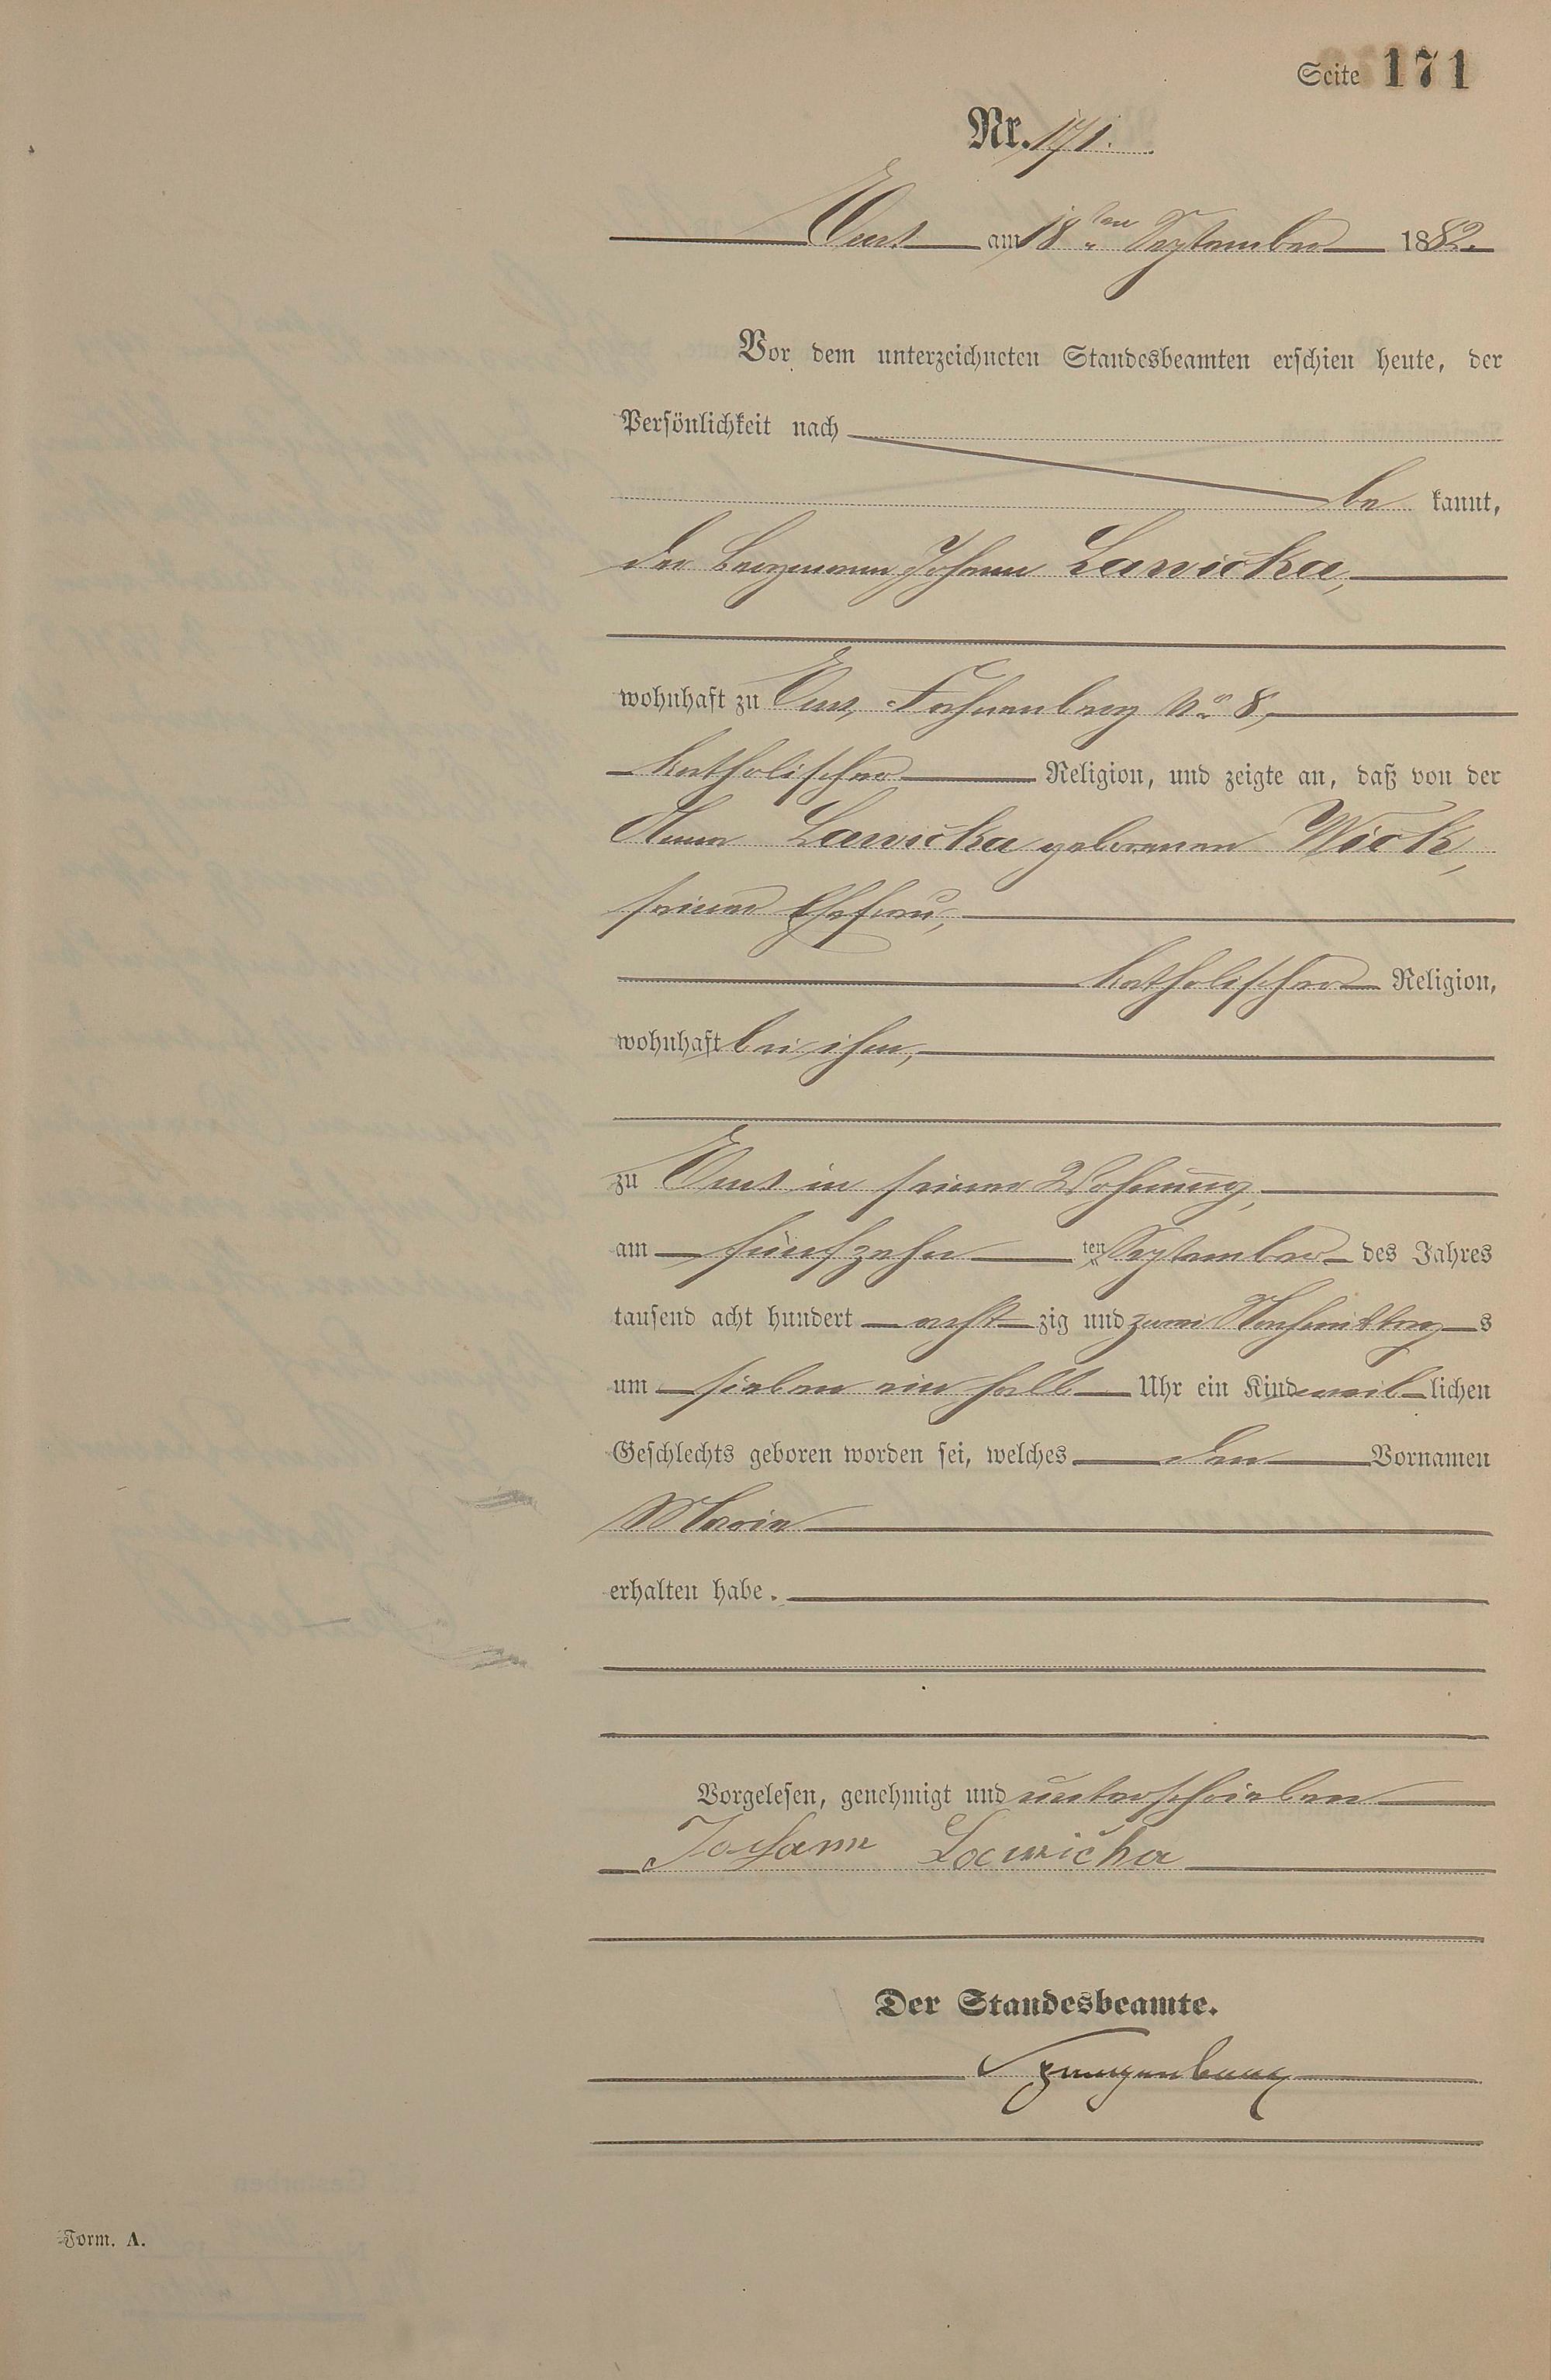 Seite 171
Nr. 171.
Ems am 18ten September 1882.
Vor dem unterzeichneten Standesbeamten erschien heute, der
Persönlichkeit nach
be kannt,
der Bergmann Johann Lawicka,
wohnhaft zu Ems, Fahnenberg No 8,
katholischer Religion, und zeigte an, daß von der
Anna Lawicka geborenen Wick,
seiner Ehefrau,
katholischer Religion,
wohnhaft bei ihm,
zu Ems in seiner Wohnung,
am fünfzehn ten September des Jahres
tausend acht hundert acht zig und zwei Nachmittag s
um sieben ein halb Uhr ein Kind weib lichen
Geschlechts geboren worden sei, welches den Vornamen
Maria
erhalten habe.
Vorgelesen, genehmigt und unterschrieben
Johann Lawička
Der Standesbeamte.
Form. A.